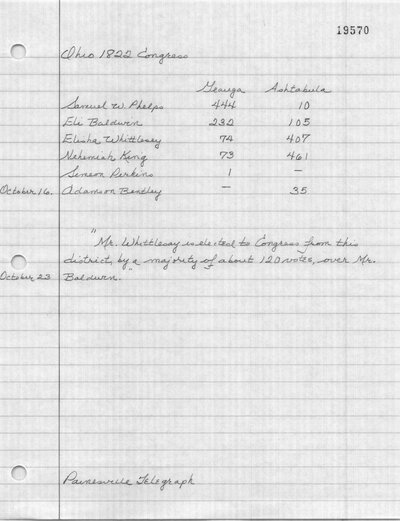 19570
Ohio 1822 Congress
Geauga Ashtabula
Samuel W. Phelps 444 10
Eli Baldwin 232 105
Elisha Whittlesey 74 407
Nehemiah King 73 461
Simeon Perkins 1 —
October 16. Adamson Bentley — 35
"Mr. Whittlesay is elected to Congress from this
district, by a majority of about 120 votes, over Mr.
October 23 Baldwin."
Painesville Telegraph